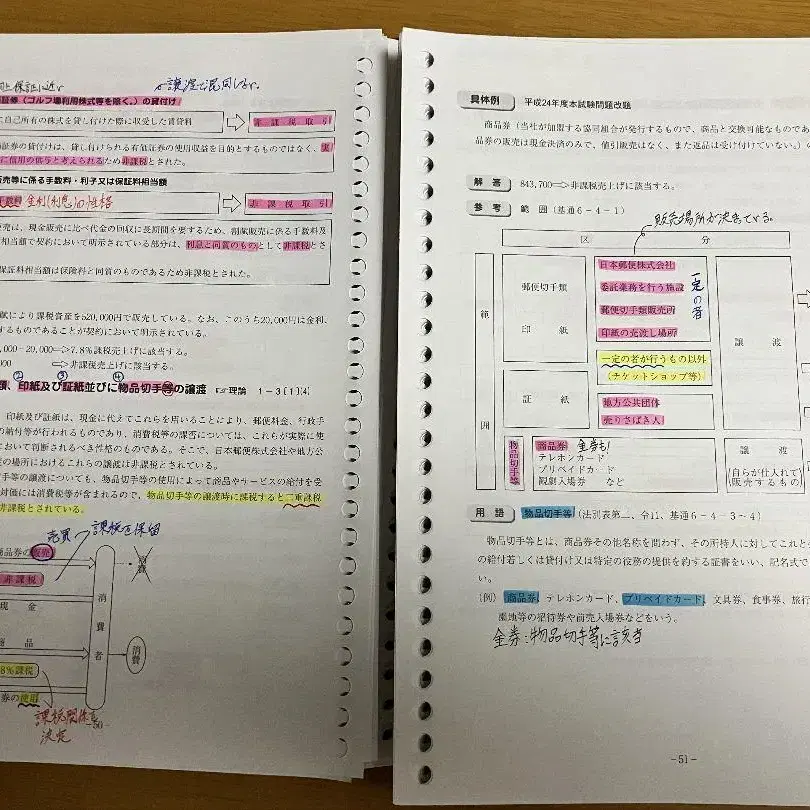 保証に近い
譲渡と混同しない。
証券（ゴルフ場利用株式等を除く。）の貸付け
に自己所有の株式を貸し付けた際に収受した賃貸料
非課税取引
証券の貸付けは、貸し付けられる有価証券の使用収益を目的とするものではなく、実
に信用の供与と考えられるため非課税とされた。
販売等に係る手数料・利子又は保証料相当額
手数料
金利(利息)的性格
非課税取引
売は、現金販売に比べ代金の回収に長期間を要するため、割賦販売に係る手数料及
相当額で契約において明示されている部分は、利息と同質のものとして非課税とさ
保証料相当額は保険料と同質のものであるため非課税とされた。
賦により課税資産を520,000円で販売している。なお、このうち20,000円は金利、
するものであることが契約において明示されている。
,000－20,000＝>7.8%課税売上げに該当する。
000 ＝>非課税売上げに該当する。
② ③ ④
類、印紙及び証紙並びに物品切手等の譲渡 ☞理論 1－3〔1〕(4)
印紙及び証紙は、現金に代えてこれらを用いることにより、郵便料金、行政手
の納付等が行われるものであり、消費税等の課否については、これらが実際に使
において判断されるべき性格のものである。そこで、日本郵便株式会社や地方公
定の場所におけるこれらの譲渡は非課税とされている。
手等の譲渡についても、物品切手等の使用によって商品やサービスの給付を受
対価には消費税等が含まれるので、物品切手等の譲渡時に課税すると二重課税
非課税とされている。
売買→課税を保留
商品券の販売
非課税
現 金
商 品
.8%課税
券の使用
消費者
消費
消費
課税関係を
決定
-50-
具体例 平成24年度本試験問題改題
商品券（当社が加盟する協同組合が発行するもので、商品と交換可能なものであ
品券の販売は現金決済のみで、値引販売はなく、また返品は受け付けていない。）の
解 答 843,700＝>非課税売上げに該当する。
参 考 範 囲（基通6－4－1）
販売場所が決まっている。
区 分
範 囲
郵便切手類
印 紙
日本郵便株式会社
委託業務を行う施設
郵便切手類販売所
印紙の売渡し場所
一定の者
一定の者が行うもの以外
（チケットショップ等）
譲 渡
証 紙
地方公共団体
売りさばき人
物品切手等
商品券 金券も！
テレホンカード
プリペイドカード
観劇入場券 など
譲 渡
自らが仕入れて
販売するもの
用 語 物品切手等（法別表第二、令11、基通6－4－3～4）
物品切手等とは、商品券その他名称を問わず、その所持人に対してこれと
の給付若しくは貸付け又は特定の役務の提供を約する証書をいい、記名式で
い。
（例）商品券、テレホンカード、プリペイドカード、文具券、食事券、旅行
園地等の招待券や前売入場券などをいう。
金券：物品切手等に該当
－51－